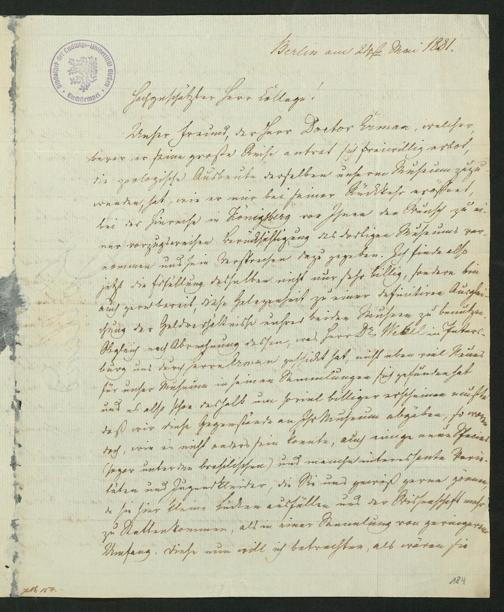 Berlin am 24ten Mai 1831.
Hochgeschätzter Herr College!
Unser Freund, der Herr Doctor Erman, welcher,
bevor er seine große Reise antrat sich freiwillig erbot,
die zoologische Ausbeute derselben unserm Museum zuzu
wenden, hat, wie er nur bei seiner Rückkehr eröffnet,
bei der Hinreise in Königsberg von Ihnen den Wunsch zu ei
ner vorzugsweisen Berücksichtigung des dortigen Museums ver
nommen und sein Versprechen dazu gegeben. Ich finde also
jetzt die Erfüllung desselben nicht nur sehr billig, sondern bin
auch gern bereit, diese Gelegenheit zu einer definitiven Ausglei
chung der Geldverhältnisse unsrer beiden Museen zu benutzen.
Obgleich nach Abrechnung dessen, was Herr Dr in Peters
burg uns durch Herrn Erman geschickt hat, nicht eben viel Neues
für unser Museum in seinen Sammlungen sich gefunden hat
und es also schon deshalb um soviel billiger erscheinen mußte
daß wir diese Gegenstände an Ihr Museum abgeben, so waren
doch, wie es nicht anders sein konnte, auch einige neue Species
(sogar unter den brasilischen) und manche interessante Varie
täten und Jugendkleider, die Sie uns gewiß gerne gönnen,
da sie hier kleine Lücken ausfüllen und der Wissenschaft mehr
zu Statten kommen, als in einer Sammlung von geringerem
Umfang. Diese nun will ich betrachten, als wären sie
184